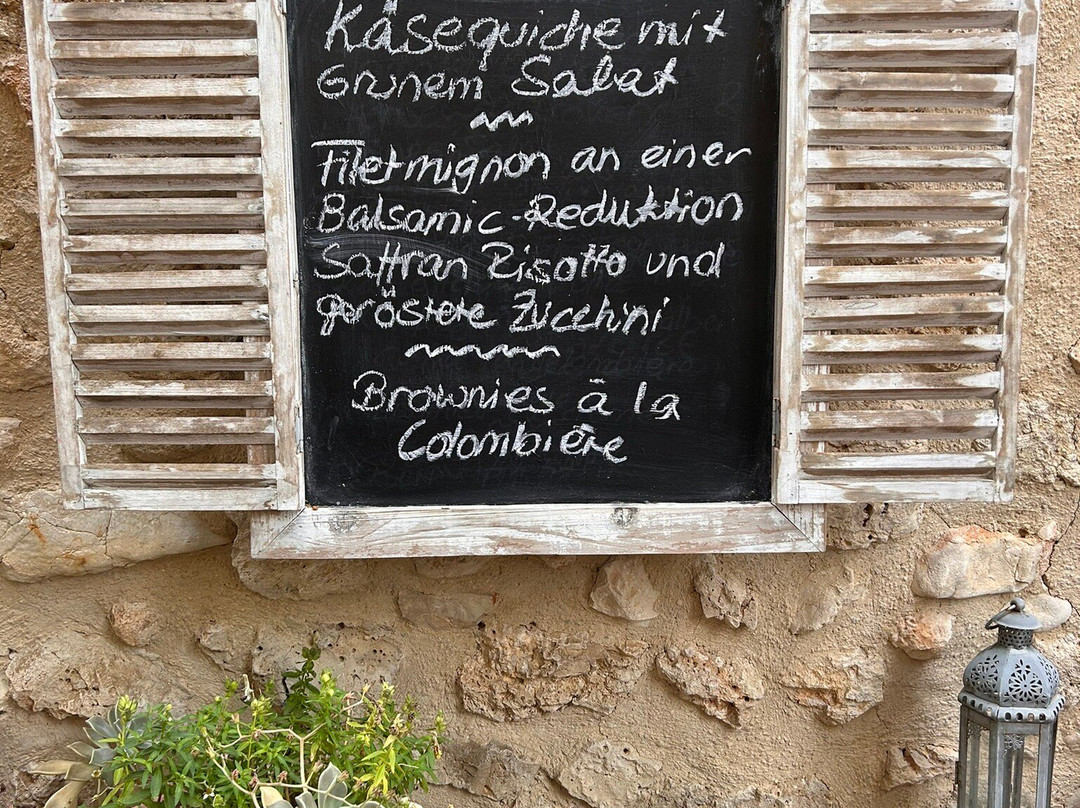 Käsequiche mit
Grünem Salat
Filetmignon an einer
Balsamic-Reduktion
Saffran Risotto und
geröstete Zucchini
Brownies à la
Colombière